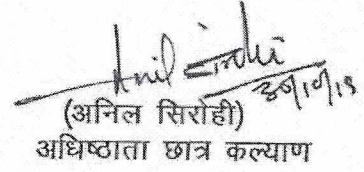 Anil Sirohi
(अनिल सिरोही)
अधिष्ठाता छात्र कल्याण